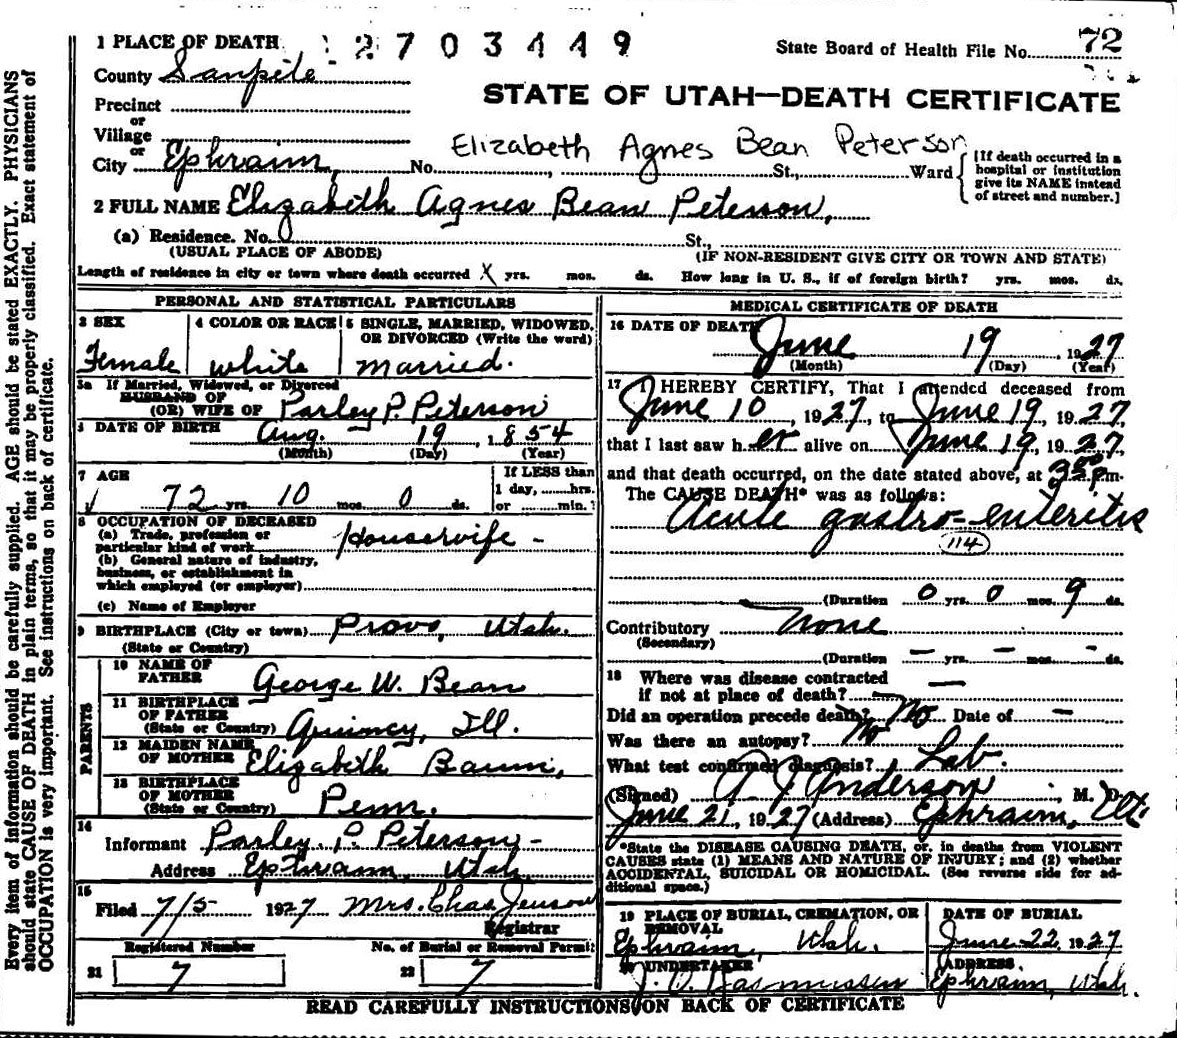 1 PLACE OF DEATH 2703449 State Board of Health File No. 72
County Sanpete
STATE OF UTAH—DEATH CERTIFICATE
Precinct
or
Village
or
Elizabeth Agnes Bean Peterson
City Ephraim, No. , St., Ward
[If death occurred in a
hospital or institution
give its NAME instead
of street and number.]
2 FULL NAME Elizabeth Agnes Bean Peterson,
(a) Residence. No. St.,
(USUAL PLACE OF ABODE) (IF NON-RESIDENT GIVE CITY OR TOWN AND STATE)
Length of residence in city or town where death occurred X yrs. mos. ds. How long in U. S., if of foreign birth? yrs. mos. ds.
PERSONAL AND STATISTICAL PARTICULARS
3 SEX
Female
4 COLOR OR RACE
white
5 SINGLE, MARRIED, WIDOWED,
OR DIVORCED (Write the word)
married.
5a If Married, Widowed, or Divorced
HUSBAND OF
(OR) WIFE OF Parley P. Peterson
DATE OF BIRTH Aug. 19, 1854
(Month) (Day) (Year)
7 AGE
72 yrs. 10 mos. 0 ds.
If LESS than
1 day, hrs.
or min.?
8 OCCUPATION OF DECEASED
(a) Trade, profession or
particular kind of work Housewife -
(b) General nature of industry,
business, or establishment in
which employed (or employer)
(c) Name of Employer
9 BIRTHPLACE (City or town) Provo, Utah.
(State or Country)
PARENTS
10 NAME OF
FATHER George W. Bean
11 BIRTHPLACE
OF FATHER
(State or Country) Quincy, Ill.
12 MAIDEN NAME
OF MOTHER Elizabeth Baum,
13 BIRTHPLACE
OF MOTHER
(State or Country) Penn.
14
Informant Parley P. Peterson -
Address Ephraim, Utah.
15
Filed 7/5 1927 Mrs. Chas Jenson
Registrar
Registered Number No. of Burial or Removal Permit
21 7 22 7
MEDICAL CERTIFICATE OF DEATH
16 DATE OF DEATH
June 19, 1927
(Month) (Day) (Year)
17 I HEREBY CERTIFY, That I attended deceased from
June 10, 1927, to June 19, 1927,
that I last saw her alive on June 19, 1927,
and that death occurred, on the date stated above, at m.
The CAUSE DEATH* was as follows:
Acute gastro-enteritis
114
(Duration 0 yrs. 0 mos. 9 ds.
Contributory None
(Secondary)
(Duration — yrs. — mos. - ds.
18 Where was disease contracted
if not at place of death? —
Did an operation precede death? No Date of —
Was there an autopsy? No
What test confirmed diagnosis? Lab.
(Signed) A J Anderson, M. D.
June 21, 1927 (Address) Ephraim, Ut.
*State the DISEASE CAUSING DEATH, or, in deaths from VIOLENT
CAUSES state (1) MEANS AND NATURE OF INJURY; and (2) whether
ACCIDENTAL, SUICIDAL OR HOMICIDAL. (See reverse side for ad-
ditional space.)
19 PLACE OF BURIAL, CREMATION, OR
REMOVAL
Ephraim, Utah.
DATE OF BURIAL
June 22, 1927
20 UNDERTAKER
Rasmussen
ADDRESS
Ephraim, Utah.
READ CAREFULLY INSTRUCTIONS ON BACK OF CERTIFICATE
Every item of information should be carefully supplied. AGE should be stated EXACTLY. PHYSICIANS
should state CAUSE OF DEATH in plain terms, so that it may be properly classified. Exact statement of
OCCUPATION is very important. See instructions on back of certificate.